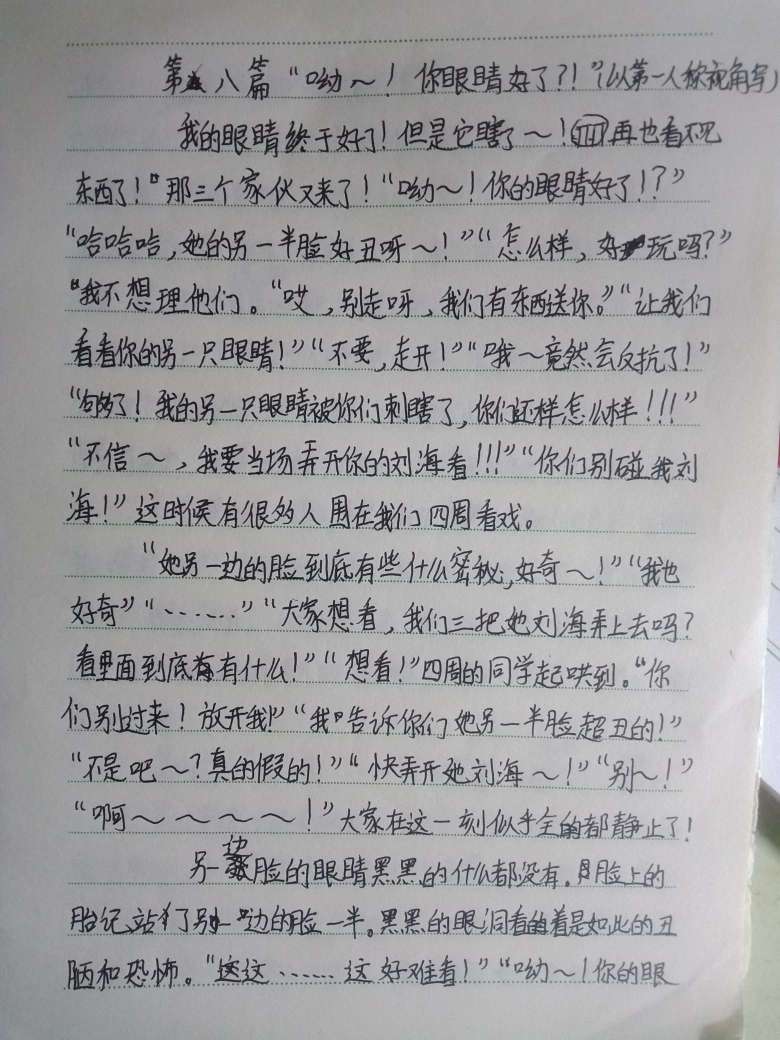 第八篇 “呦～！你眼睛好了?!”（以第一人称视角写）
我的眼睛终于好了！但是它瞎了～！再也看不见
东西了！“那三个家伙又来了！“呦～！你的眼睛好了！？”
“哈哈哈，她的另一半脸好丑呀～！”“怎么样，好玩吗？”
“我不想理他们。“哎，别走呀，我们有东西送你。”“让我们
看看你的另一只眼睛！”“不要，走开！”“哦～竟然会反抗了！”
“够了！我的另一只眼睛被你们刺瞎了，你们还样怎么样！！！”
“不信～，我要当场弄开你的刘海看!!!”“你们别碰我刘
海！”这时候有很多人围在我们四周看戏。
“她另一边的脸到底有些什么密秘，好奇～！”“我也
好奇”“……”“大家想看，我们三把她刘海弄上去吗？
看里面到底有什么！”“想看！”四周的同学起哄到。“你
们别过来！放开我！”“我告诉你们她另一半脸超丑的！”
“不是吧～？真的假的！”“快弄开她刘海～！”“别～！”
“啊～～～～！”大家在这一刻似乎全都静止了！
另一边脸的眼睛黑黑的什么都没有。脸上的
胎记站了另一边的脸一半。黑黑的眼洞看着是如此的丑
陋和恐怖。“这……这好难看！”“呦～！你的眼